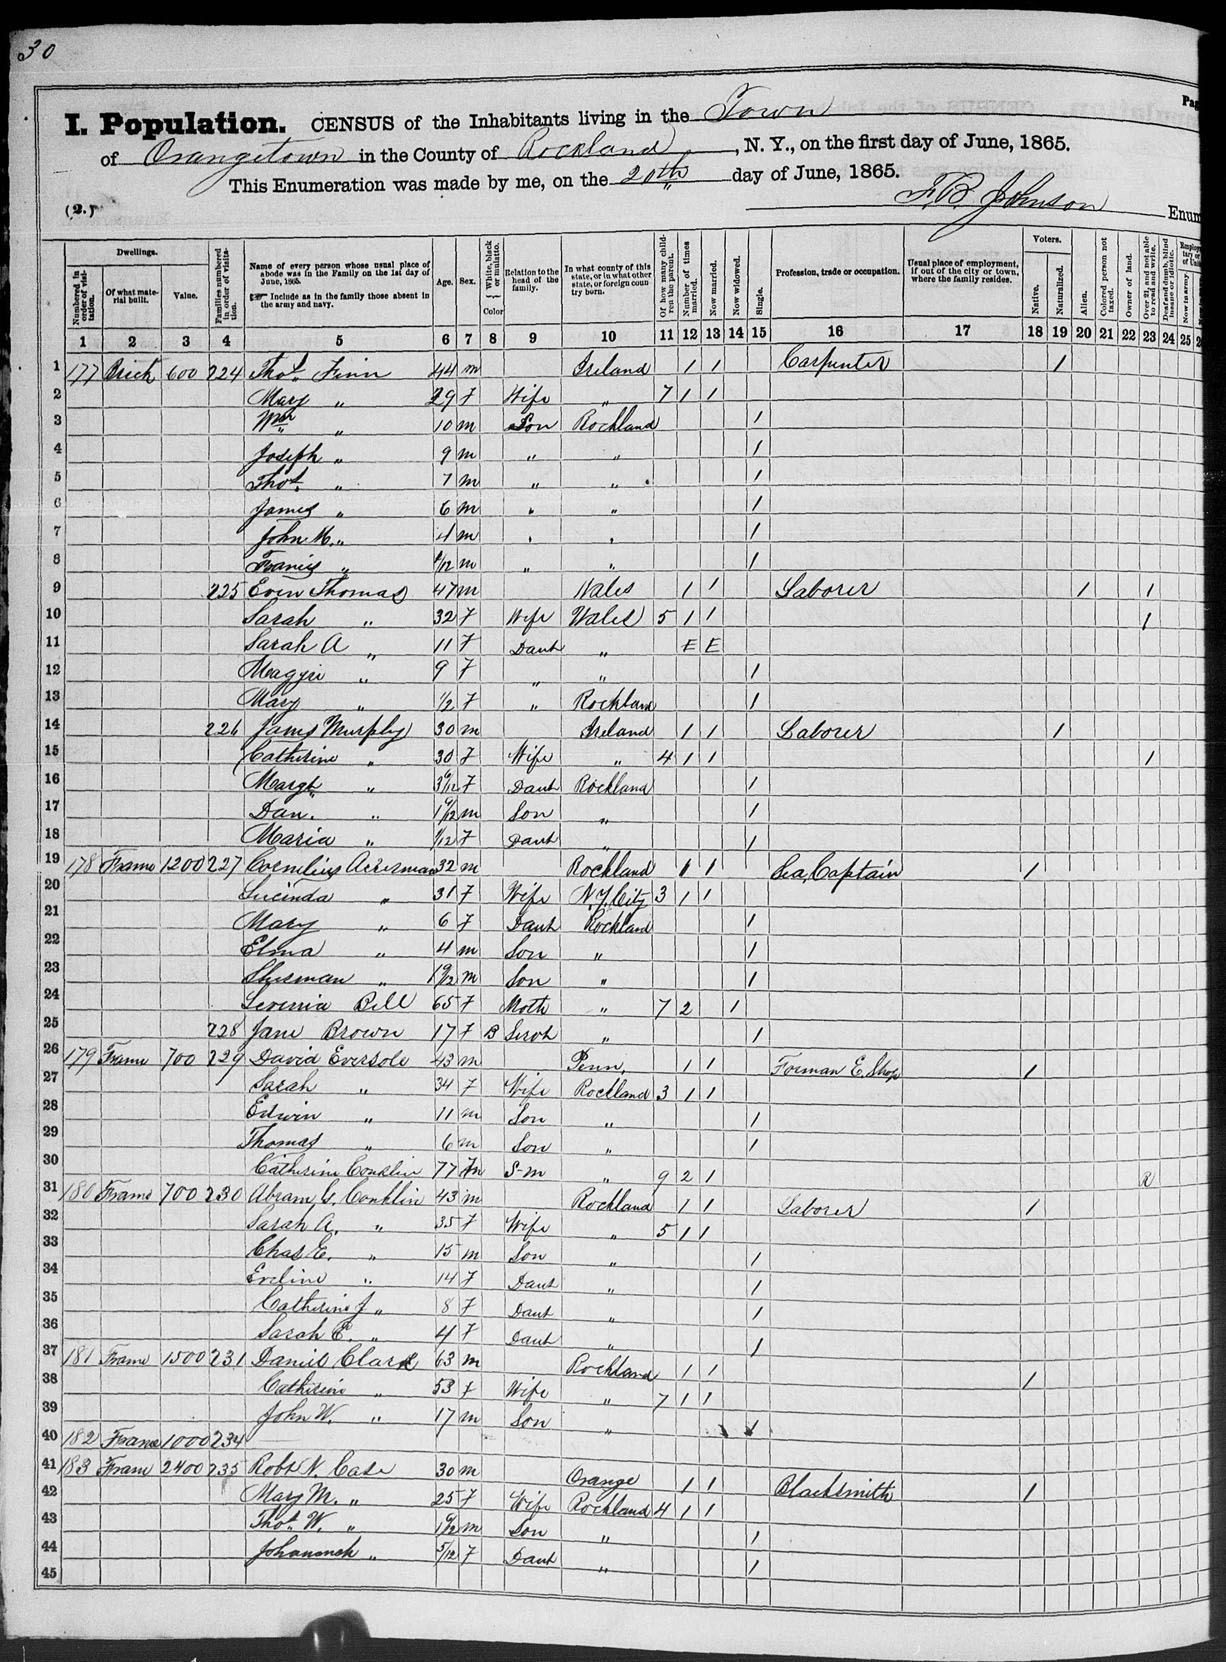 30
Pag
I. Population. CENSUS of the Inhabitants living in the Town
of Orangetown in the County of Rockland, N. Y., on the first day of June, 1865.
This Enumeration was made by me, on the 20th day of June, 1865.
(2.) F. B. Johnson Enum
Dwellings. Voters.
Numbered in order of visitation. Of what material built. Value. Families numbered in order of visitation. Name of every person whose usual place of abode was in the Family on the 1st day of June, 1865. Include as in the family those absent in the army and navy. Age. Sex. White, black or mulatto. Color Relation to the head of the family. In what county of this state, or in what other state, or foreign country born. Of how many children the parent. Number of times married. Now married. Now widowed. Single. Profession, trade or occupation. Usual place of employment, if out of the city or town, where the family resides. Native. Naturalized. Alien. Colored person not taxed. Owner of land. Over 21, and not able to read and write. Deaf and dumb, blind insane or idiotic. Now in army
1 2 3 4 5 6 7 8 9 10 11 12 13 14 15 16 17 18 19 20 21 22 23 24 25
1 177 Brick 600 224 Thos Finn 44 m Ireland 1 1 Carpenter 1
2 Mary " 29 F Wife " 7 1 1
3 Wm " 10 m Son Rockland 1
4 Joseph " 9 m " " 1
5 Thos. " 7 m " " 1
6 James " 6 m " " 1
7 John M. " 4 m " " 1
8 Francis " /12 m " " 1
9 225 Even Thomas 47 m Wales 1 1 Laborer 1 1
10 Sarah " 32 F Wife Wales 5 1 1 1
11 Sarah A " 11 F Daut " E E
12 Maggie " 9 F " " 1
13 Mary " 1/2 F " Rockland 1
14 226 James Murphy 30 m Ireland 1 1 Laborer 1
15 Catherine " 30 F Wife " 4 1 1 1
16 Margt " 3 /12 F Daut Rockland 1
17 Dan. " 1 /12 m Son " 1
18 Maria " /12 F Daut " 1
19 178 Frame 1200 227 Cornelius Ackerman 32 m Rockland 1 1 Sea Captain 1
20 Lucinda " 31 F Wife N.Y. City 3 1 1
21 Mary " 6 F Daut Rockland 1
22 Elma " 4 m Son " 1
23 Sherman " 1 9/12 m Son " 1
24 Bell 65 F Moth " 7 2 1
25 228 Jane Brown 17 F B Servt " 1
26 179 Frame 700 229 David Eversole 43 m Penn. 1 1 Forman E. Shop 1
27 Sarah " 34 F Wife Rockland 3 1 1
28 Edwin " 11 m Son " 1
29 Thomas " 6 m Son " 1
30 Catherine Conklin 77 S-m " 9 2 1 R
31 180 Frame 700 230 Abram G. Conklin 43 m Rockland 1 1 Laborer 1
32 Sarah A. " 35 F Wife " 5 1 1
33 Chas E. " 15 m Son " 1
34 Eveline " 14 F Daut " 1
35 Catherine J " 8 F Daut " 1
36 Sarah E. " 4 F Daut " 1
37 181 Frame 1500 231 Daniel Clark 63 m Rockland 1 1 1
38 Catherine " 53 F Wife " 7 1 1
39 John W. " 17 m Son " 1
40 182 Frame 1000 234
41 183 Fram 2400 235 Robt N. Case 30 m Orange 1 1 Blacksmith 1
42 Mary M. " 25 F Wife Rockland 4 1 1
43 Thos. W. " 1 9/12 m Son " 1
44 " 5/12 F Daut " 1
45